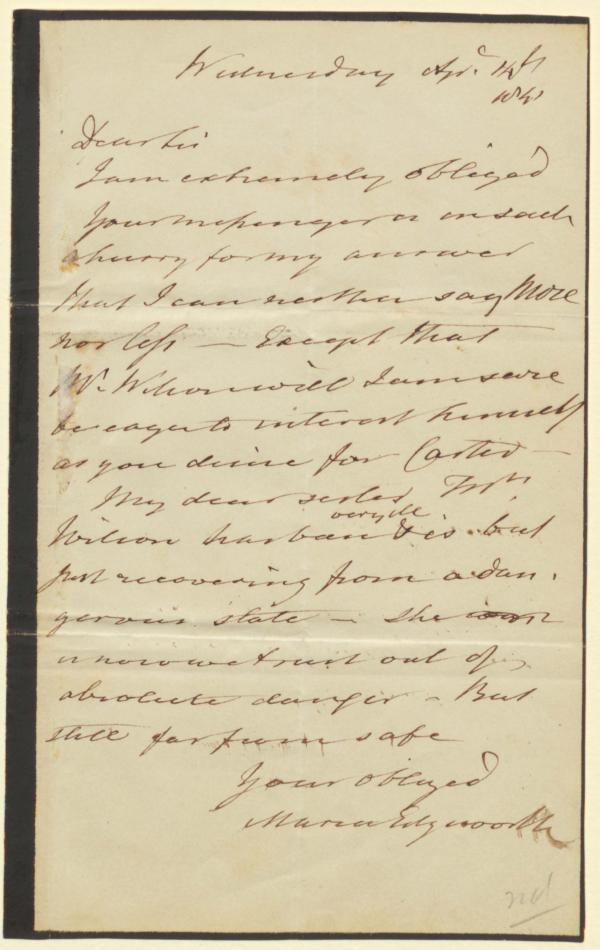 Wednesday Apr. 14th
184
Dear Sir
I am extremely obliged
Your messenger is in such
a hurry for my answer
that I can neither say More
nor less — Except that
Mr. Wilson will I am sure
be eager to interest himself
as you desire for
My dear sister
very ill
Wilson has been & is but
just recovering from a dan.
gerous state — She was
is now we trust out of
absolute danger — But
still far from safe
Your obliged
Maria Edgeworth